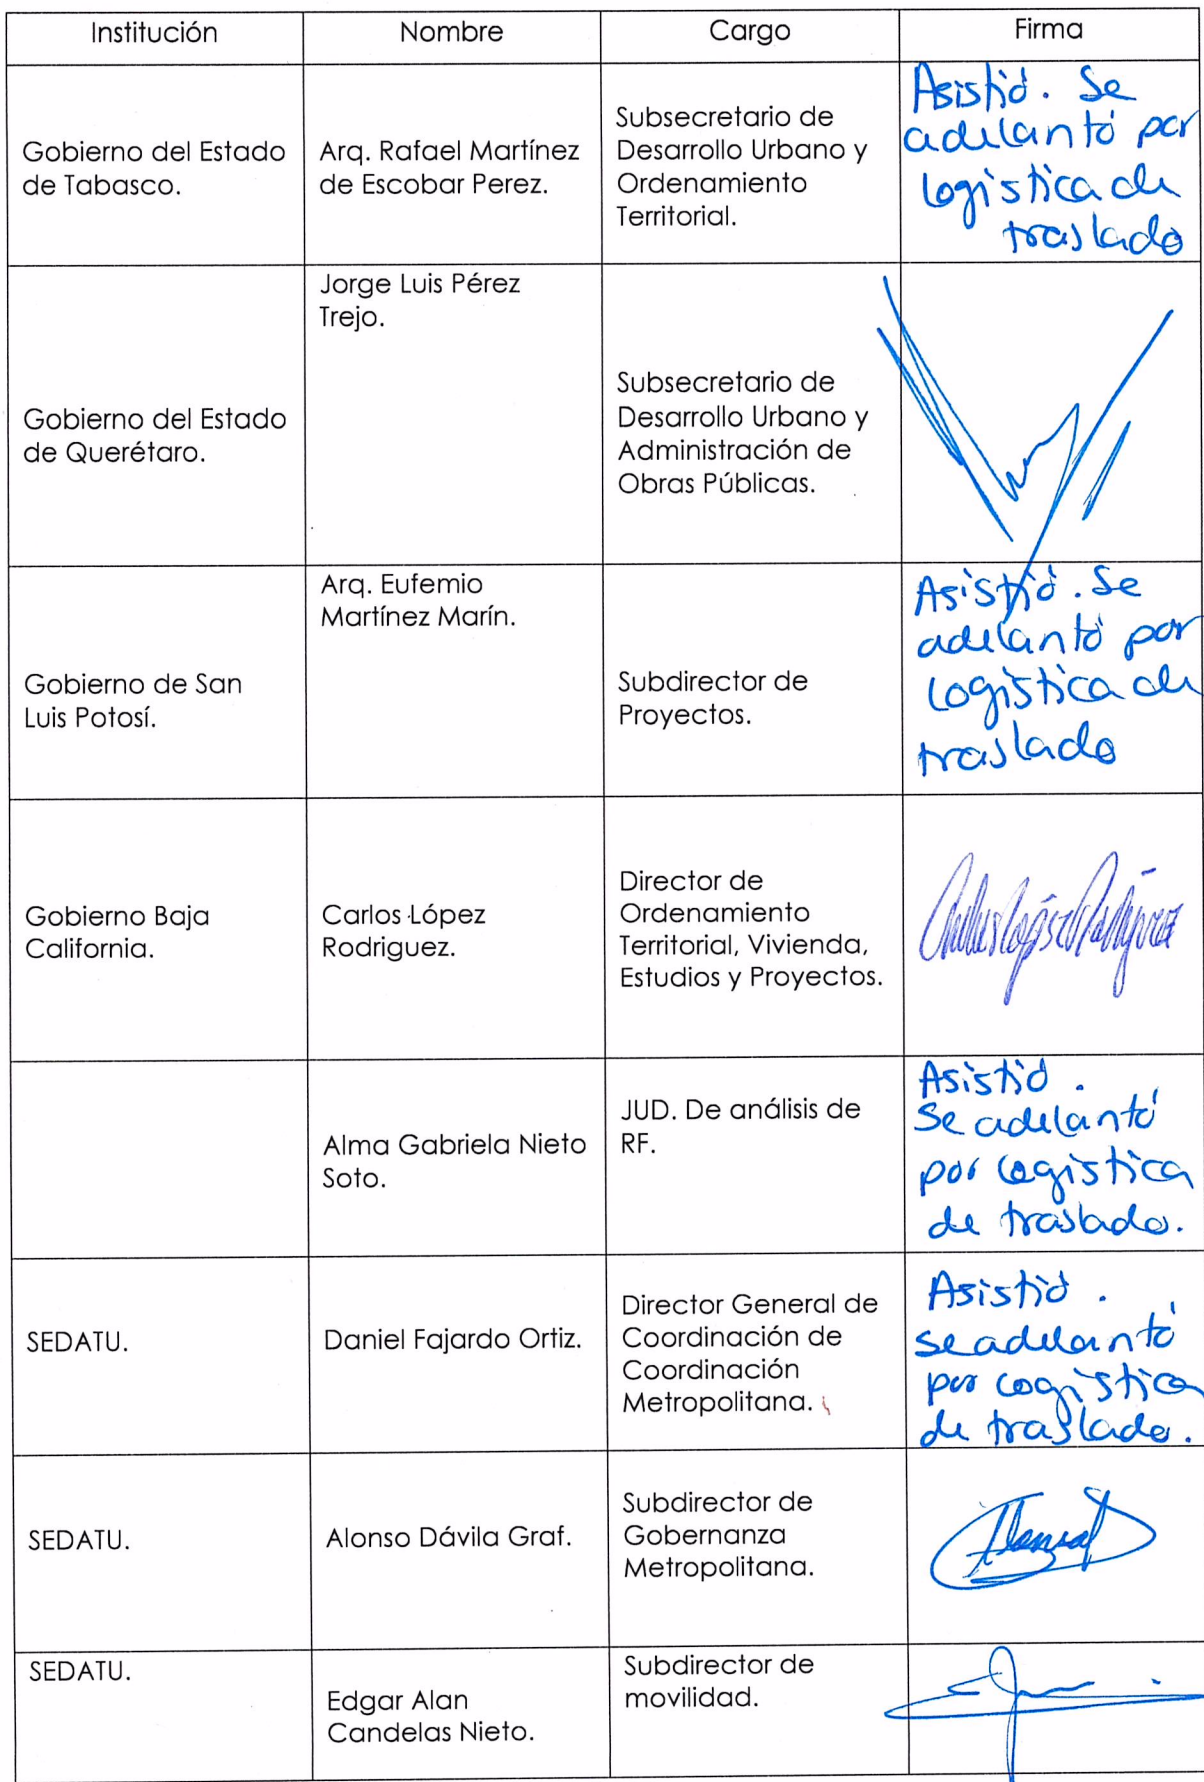 Institución
Nombre
Cargo
Firma
Gobierno del Estado
de Tabasco.
Arq. Rafael Martínez
de Escobar Perez.
Subsecretario de
Desarrollo Urbano y
Ordenamiento
Territorial.
Asistió. Se
adelantó por
logistica de
traslado
Gobierno del Estado
de Querétaro.
Jorge Luis Pérez
Trejo.
Subsecretario de
Desarrollo Urbano y
Administración de
Obras Públicas.
Gobierno de San
Luis Potosí.
Arq. Eufemio
Martínez Marín.
Subdirector de
Proyectos.
Asistió. Se
adelantó por
logistica de
traslado
Gobierno Baja
California.
Carlos López
Rodriguez.
Director de
Ordenamiento
Territorial, Vivienda,
Estudios y Proyectos.
Alma Gabriela Nieto
Soto.
JUD. De análisis de
RF.
Asistió.
Se adelantó
por logistica
de traslado.
SEDATU.
Daniel Fajardo Ortiz.
Director General de
Coordinación de
Coordinación
Metropolitana.
Asistió.
se adelantó
por logistica
de traslado.
SEDATU.
Alonso Dávila Graf.
Subdirector de
Gobernanza
Metropolitana.
SEDATU.
Edgar Alan
Candelas Nieto.
Subdirector de
movilidad.